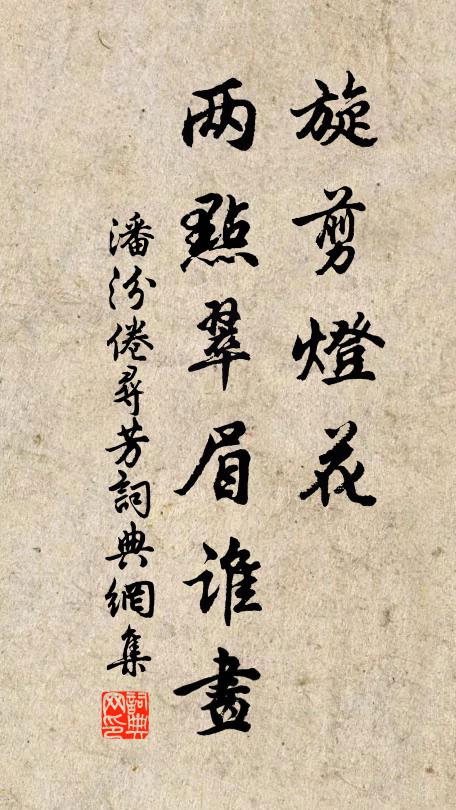 旋剪燈花
两點翠眉谁畫
潘汾倦尋芳詞典網集
詞典网印